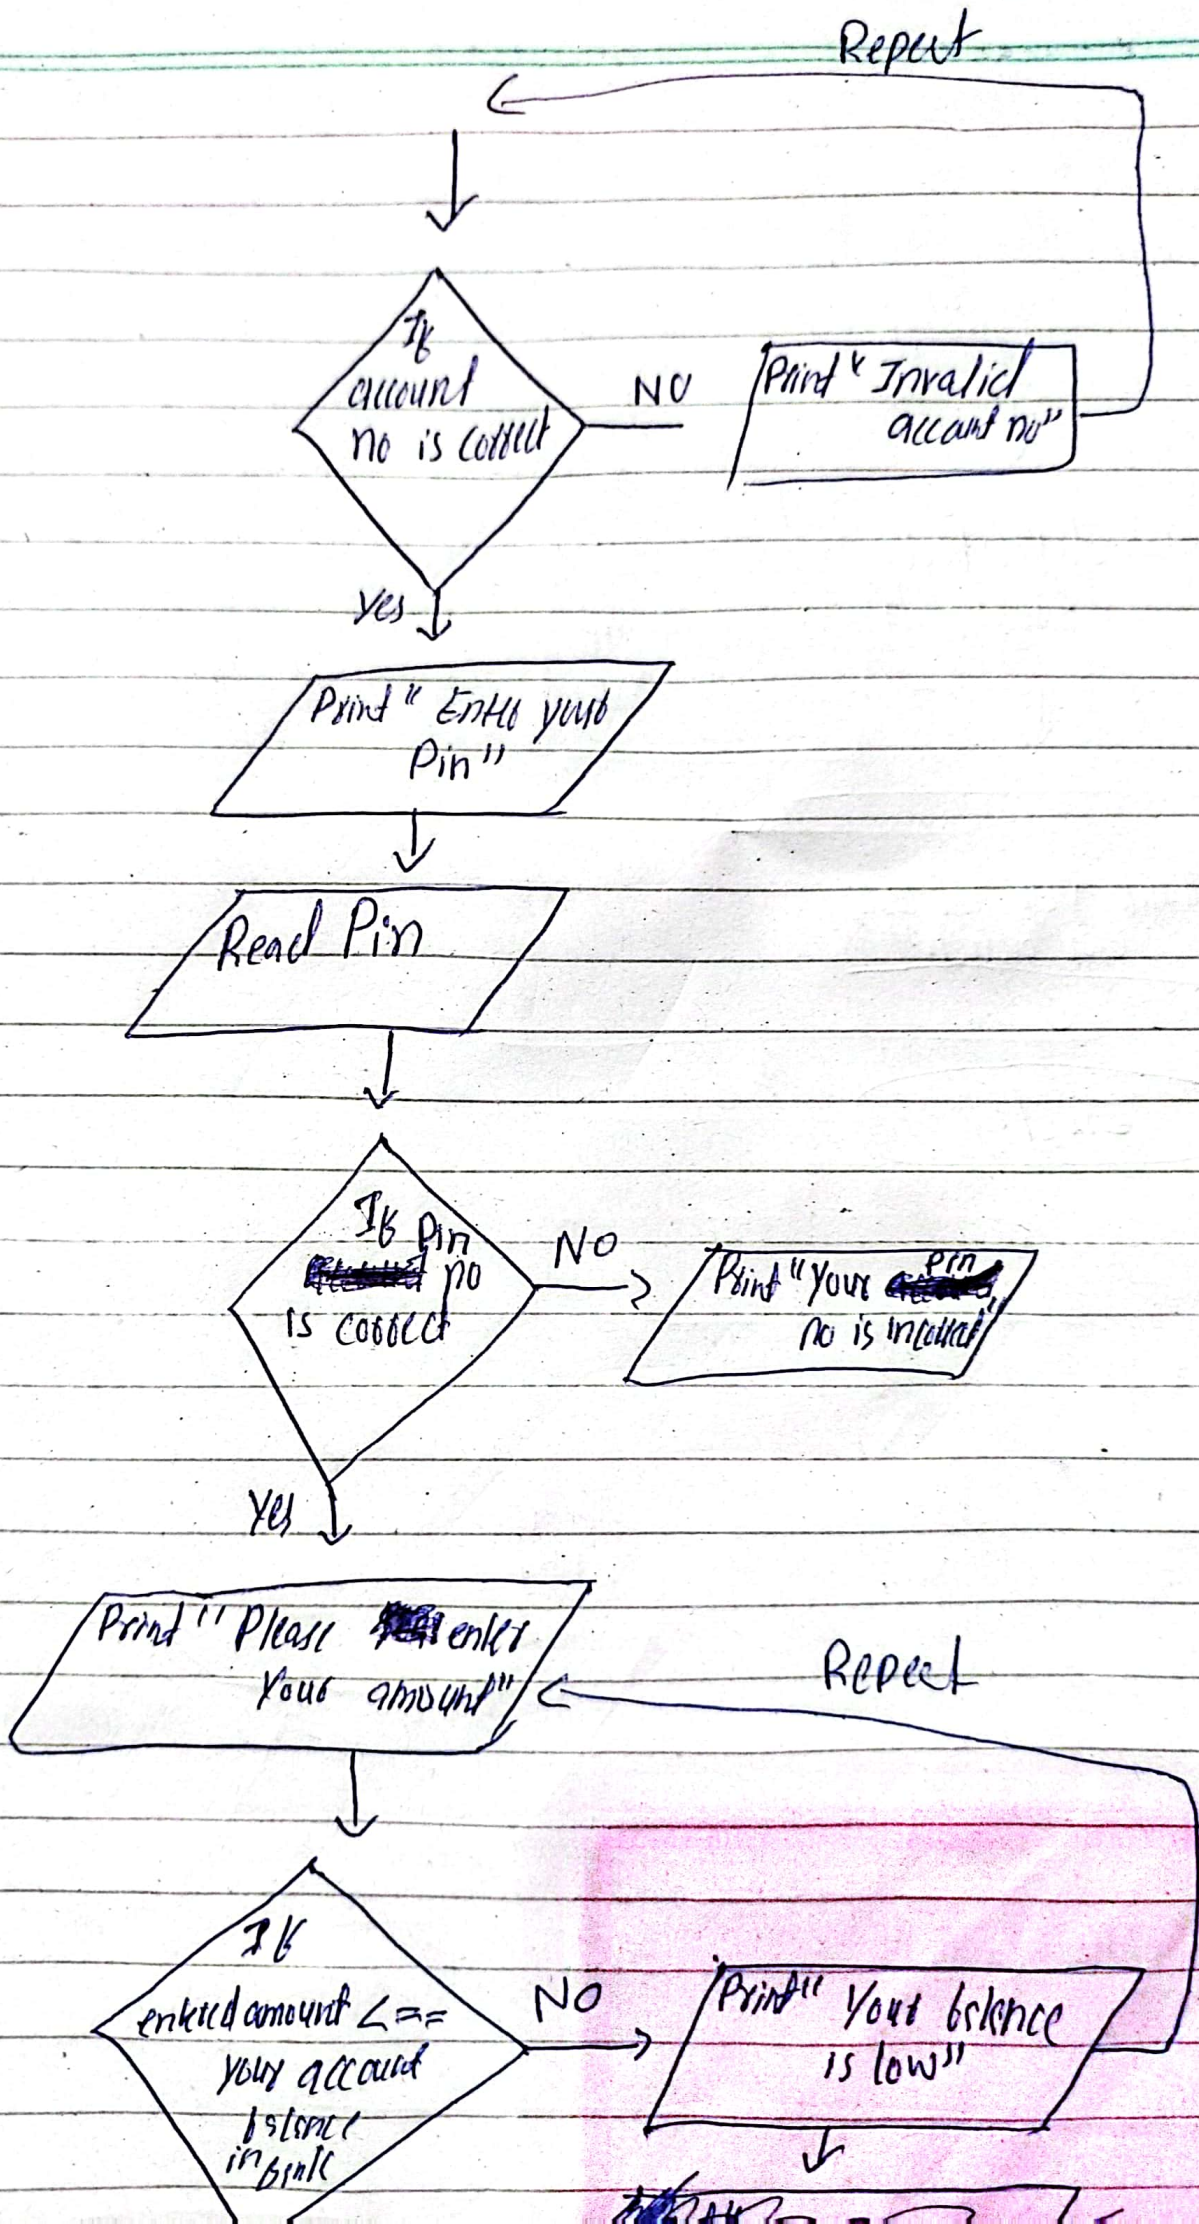 Repeat
If
account
no is correct
NO
Print "Invalid
account no"
Yes
Print "Enter your
Pin"
Read Pin
If Pin
no
is correct
NO
Print "Your pin
no is incorrect"
Yes
Print "Please enter
Your amount"
Repeat
If
entered amount <==
your account
balance
in bank
NO
Print "Your balance
is low"